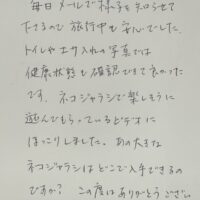 毎日メールで様子を知らせて
下さるので旅行中も安心でした。
トイレやエサ入れの写真では
健康状態も確認できて良かった
です。ネコジャラシで楽しそうに
遊んでもらっているビデオに
ほっこりしました。あの大きな
ネコジャラシはどこで入手できるの
ですか？ この度はありがとうござい